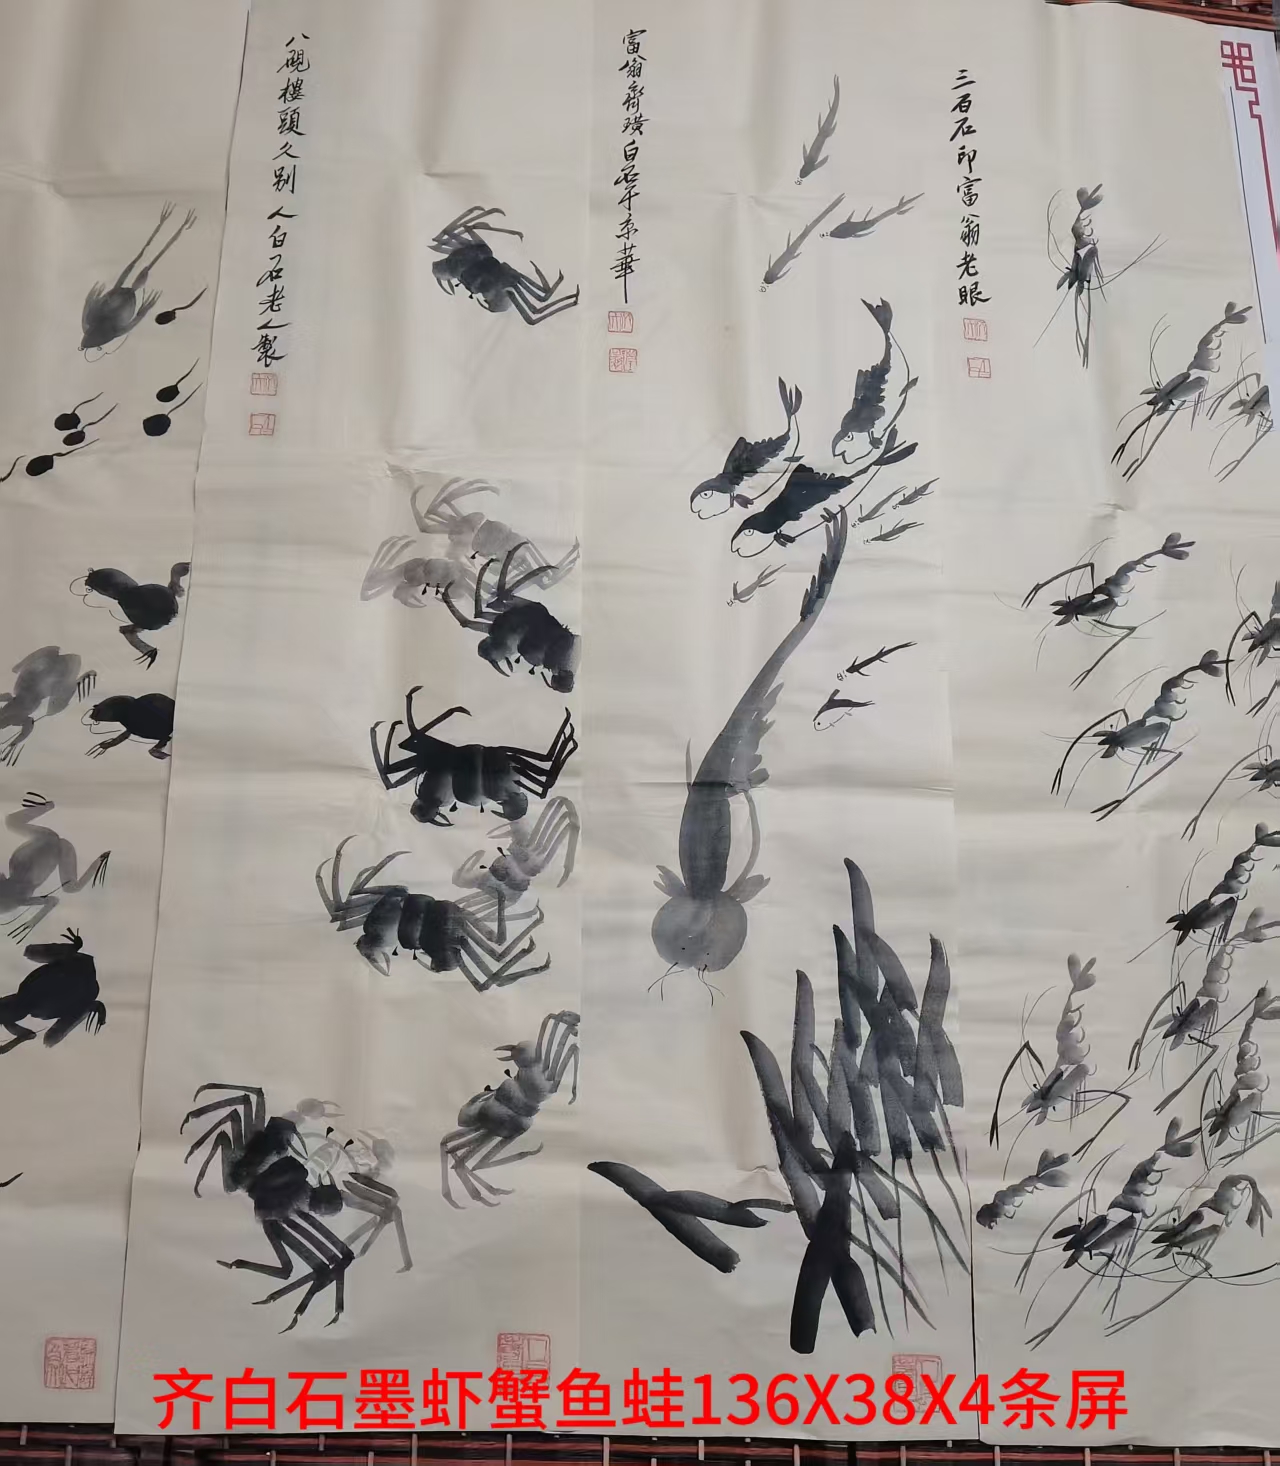 三百石印富翁老眼
富翁齊璜白石于京華
八硯樓頭久別人白石老人製
齐白石墨虾蟹鱼蛙136X38X4条屏